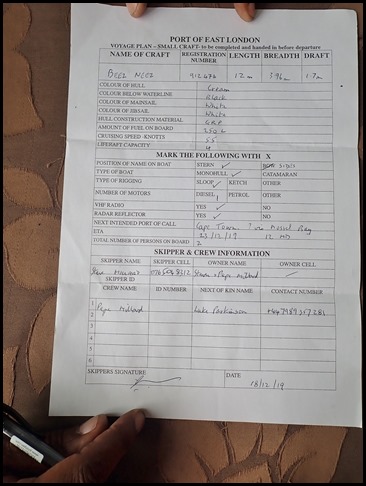 PORT OF EAST LONDON
VOYAGE PLAN - SMALL CRAFT- to be completed and handed in before departure
NAME OF CRAFT REGISTRATION NUMBER LENGTH BREADTH DRAFT
BEEZ NEEZ 912476 12m 3.96m 1.7m
COLOUR OF HULL Cream
COLOUR BELOW WATERLINE Black
COLOUR OF MAINSAIL White
COLOUR OF JIBSAIL White
HULL CONSTRUCTION MATERIAL GRP
AMOUNT OF FUEL ON BOARD 250 L
CRUISING SPEED -KNOTTS
LIFERAFT CAPACITY 4
MARK THE FOLLOWING WITH X
POSITION OF NAME ON BOAT STERN ✓ SIDES
TYPE OF BOAT MONOHULL ✓ CATAMARAN
TYPE OF RIGGING SLOOP ✓ KETCH OTHER
NUMBER OF MOTORS DIESEL 1 PETROL OTHER
VHF RADIO YES ✓ NO
RADAR REFLECTOR YES ✓ NO
NEXT INTENDED PORT OF CALL Cape Town ? or Mossel Bay
ETA 23/12/19
TOTAL NUMBER PERSONS ON BOARD 2
SKIPPER & CREW INFORMATION
SKIPPER NAME SKIPPER CELL OWNER NAME OWNER CELL
SKIPPER ID
CREW NAME ID NUMBER NEXT OF KIN NAME CONTACT NUMBER
1 Luke Parkinson +447989317281
2
3
4
5
6
SKIPPERS SIGNATURE DATE
18/12/19